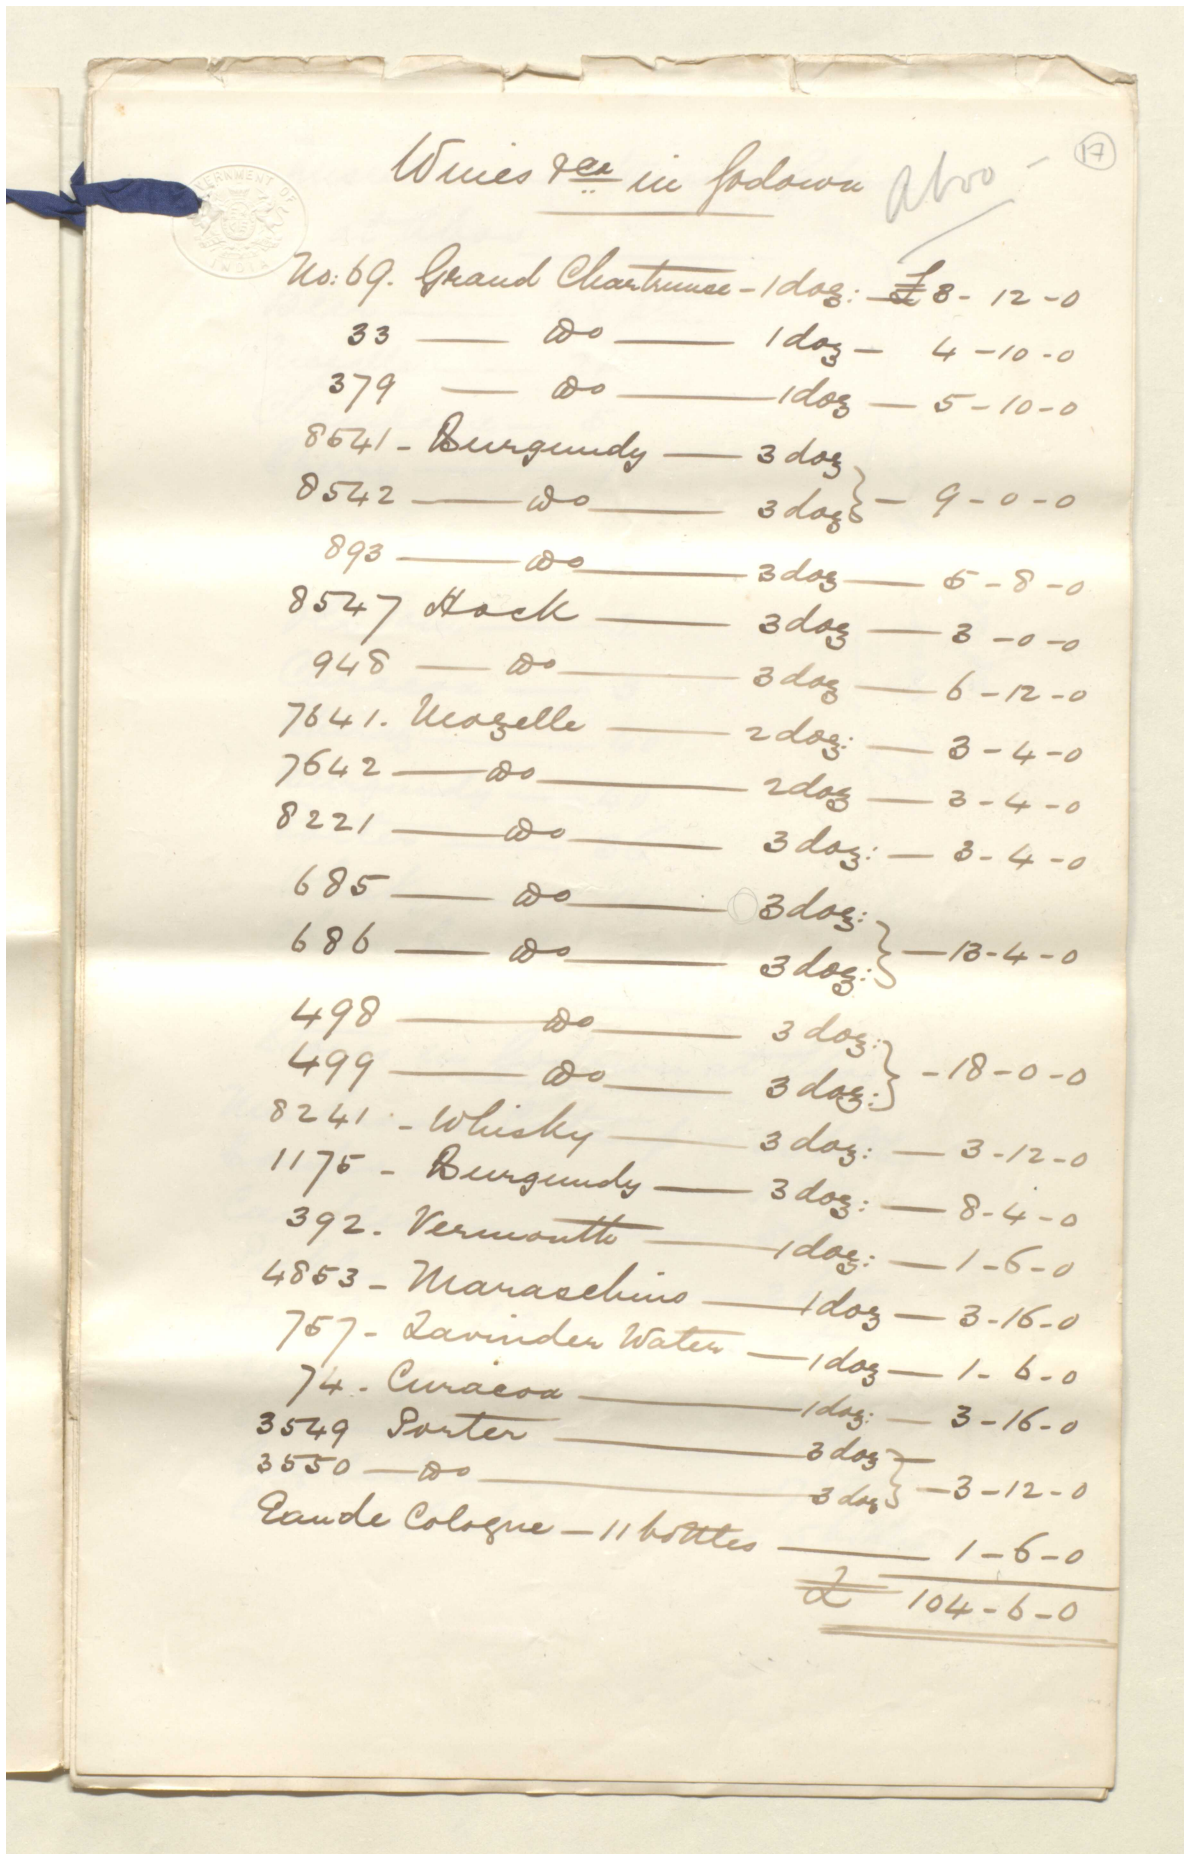 17
Wines &ca in Godown
GOVERNMENT OF INDIA
No: 69. Grand Chartruese - 1 doz: - £ 8 - 12 - 0
33 — Do — 1 doz - 4 - 10 - 0
379 — Do — 1 doz - 5 - 10 - 0
8541 - Burgundy — 3 doz
8542 — Do — 3 doz } - 9 - 0 - 0
893 — Do — 3 doz — 5 - 8 - 0
8547 Hock — 3 doz — 3 - 0 - 0
948 — Do — 3 doz — 6 - 12 - 0
7641. Mozelle — 2 doz: — 3 - 4 - 0
7642 — Do — 2 doz — 3 - 4 - 0
8221 — Do — 3 doz: — 3 - 4 - 0
685 — Do — 3 doz:
686 — Do — 3 doz: } - 13 - 4 - 0
498 — Do — 3 doz:
499 — Do — 3 doz: } - 18 - 0 - 0
8241 - Whisky — 3 doz: — 3 - 12 - 0
1175 - Burgundy — 3 doz: — 8 - 4 - 0
392. Vermouth — 1 doz: — 1 - 6 - 0
4853 - Maraschino — 1 doz — 3 - 16 - 0
757 - Lavinder Water — 1 doz — 1 - 6 - 0
74. Curacoa — 1 doz: — 3 - 16 - 0
3549 Porter — 3 doz —
3550 — Do — 3 doz } - 3 - 12 - 0
Eau de Cologne - 11 bottles — 1 - 6 - 0
£ 104 - 6 - 0